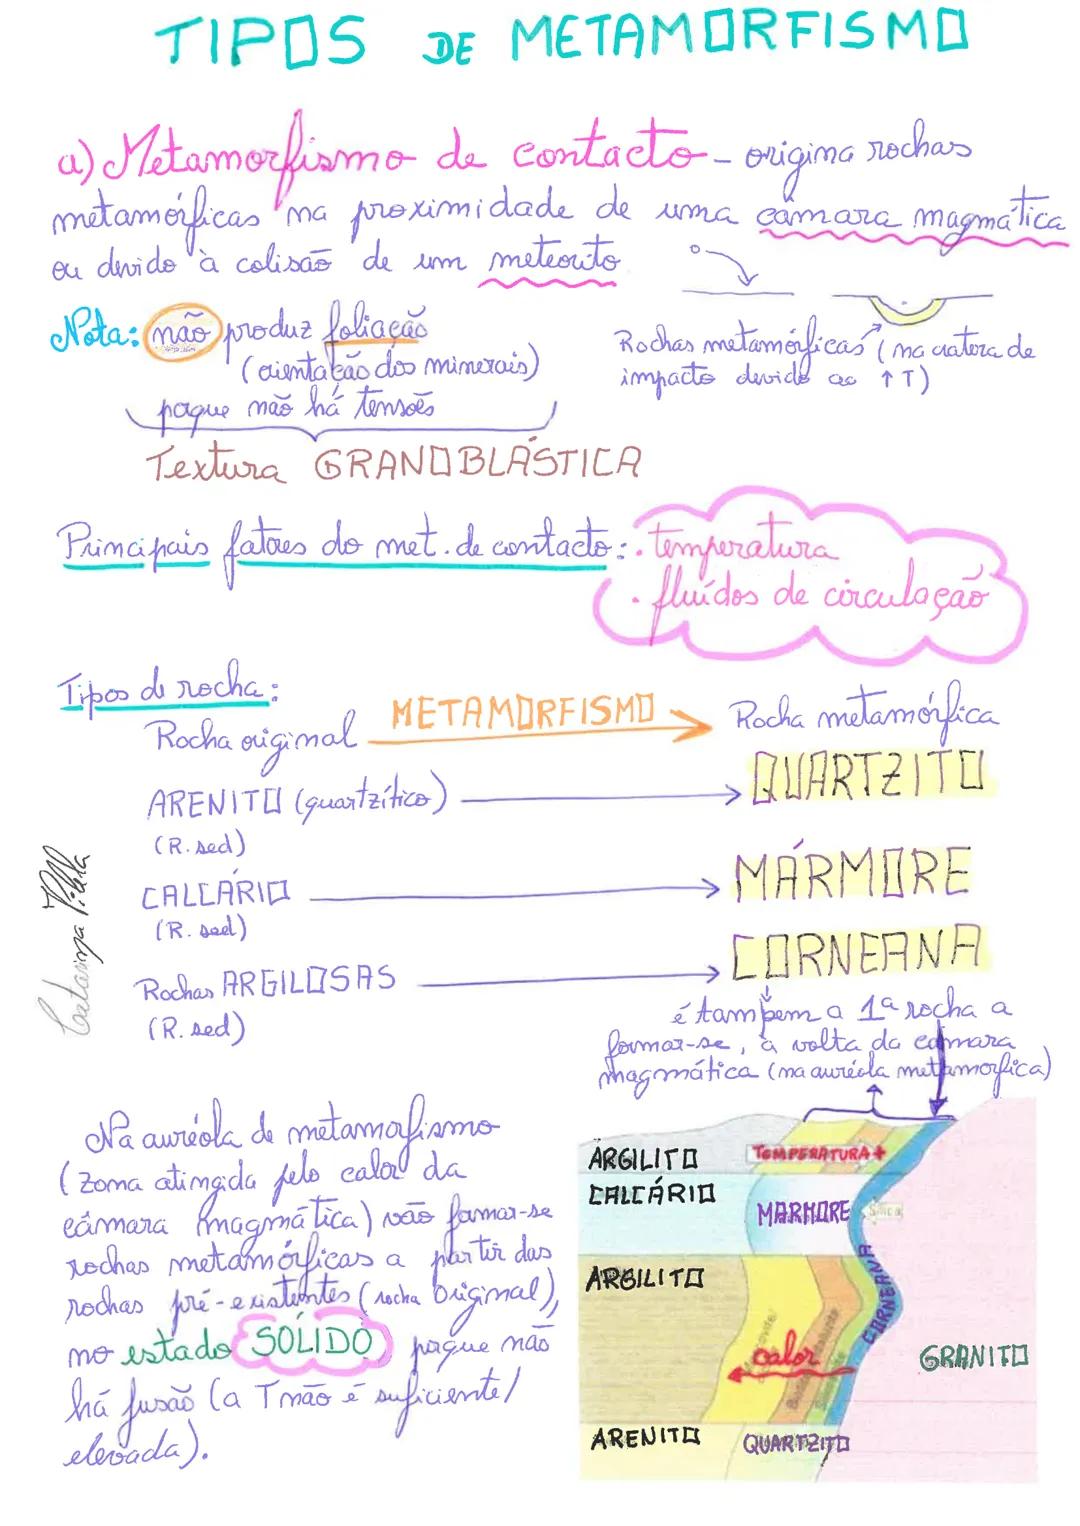 TIPOS DE METAMORFISMO
a) Metamorfismo de contacto - origina rochas
metamórficas na proximidade de uma câmara magmática
ou devido à colisão de um meteorito
Nota: não produz foliação
(orientação dos minerais)
porque não há tensões
Textura GRANOBLÁSTICA
Rochas metamórficas (na cratera de
impacto devido ao ↑T)
Principais fatores do met. de contacto: . temperatura
. fluídos de circulação
Tipos de rocha:
Rocha original METAMORFISMO Rocha metamórfica
ARENITO (quartzítico) → QUARTZITO
(R. sed)
CALCÁRIO → MÁRMORE
(R. sed)
Rochas ARGILOSAS → CORNEANA
(R. sed)
é também a 1ª rocha a
formar-se, à volta da câmara
magmática (na auréola metamorfica)
Catarina
Na auréola de metamorfismo
(zona atingida pelo calor da
câmara magmática) vão formar-se
rochas metamórficas a partir das
rochas pré-existentes (rocha original),
no estado SÓLIDO porque não
há fusão (a T não é suficiente/
elevada).
ARGILITO
TEMPERATURA+
CALCÁRIO
MARMORE
ARGILITO
CORNEANA
calor
GRANITO
ARENITO
QUARTZITO